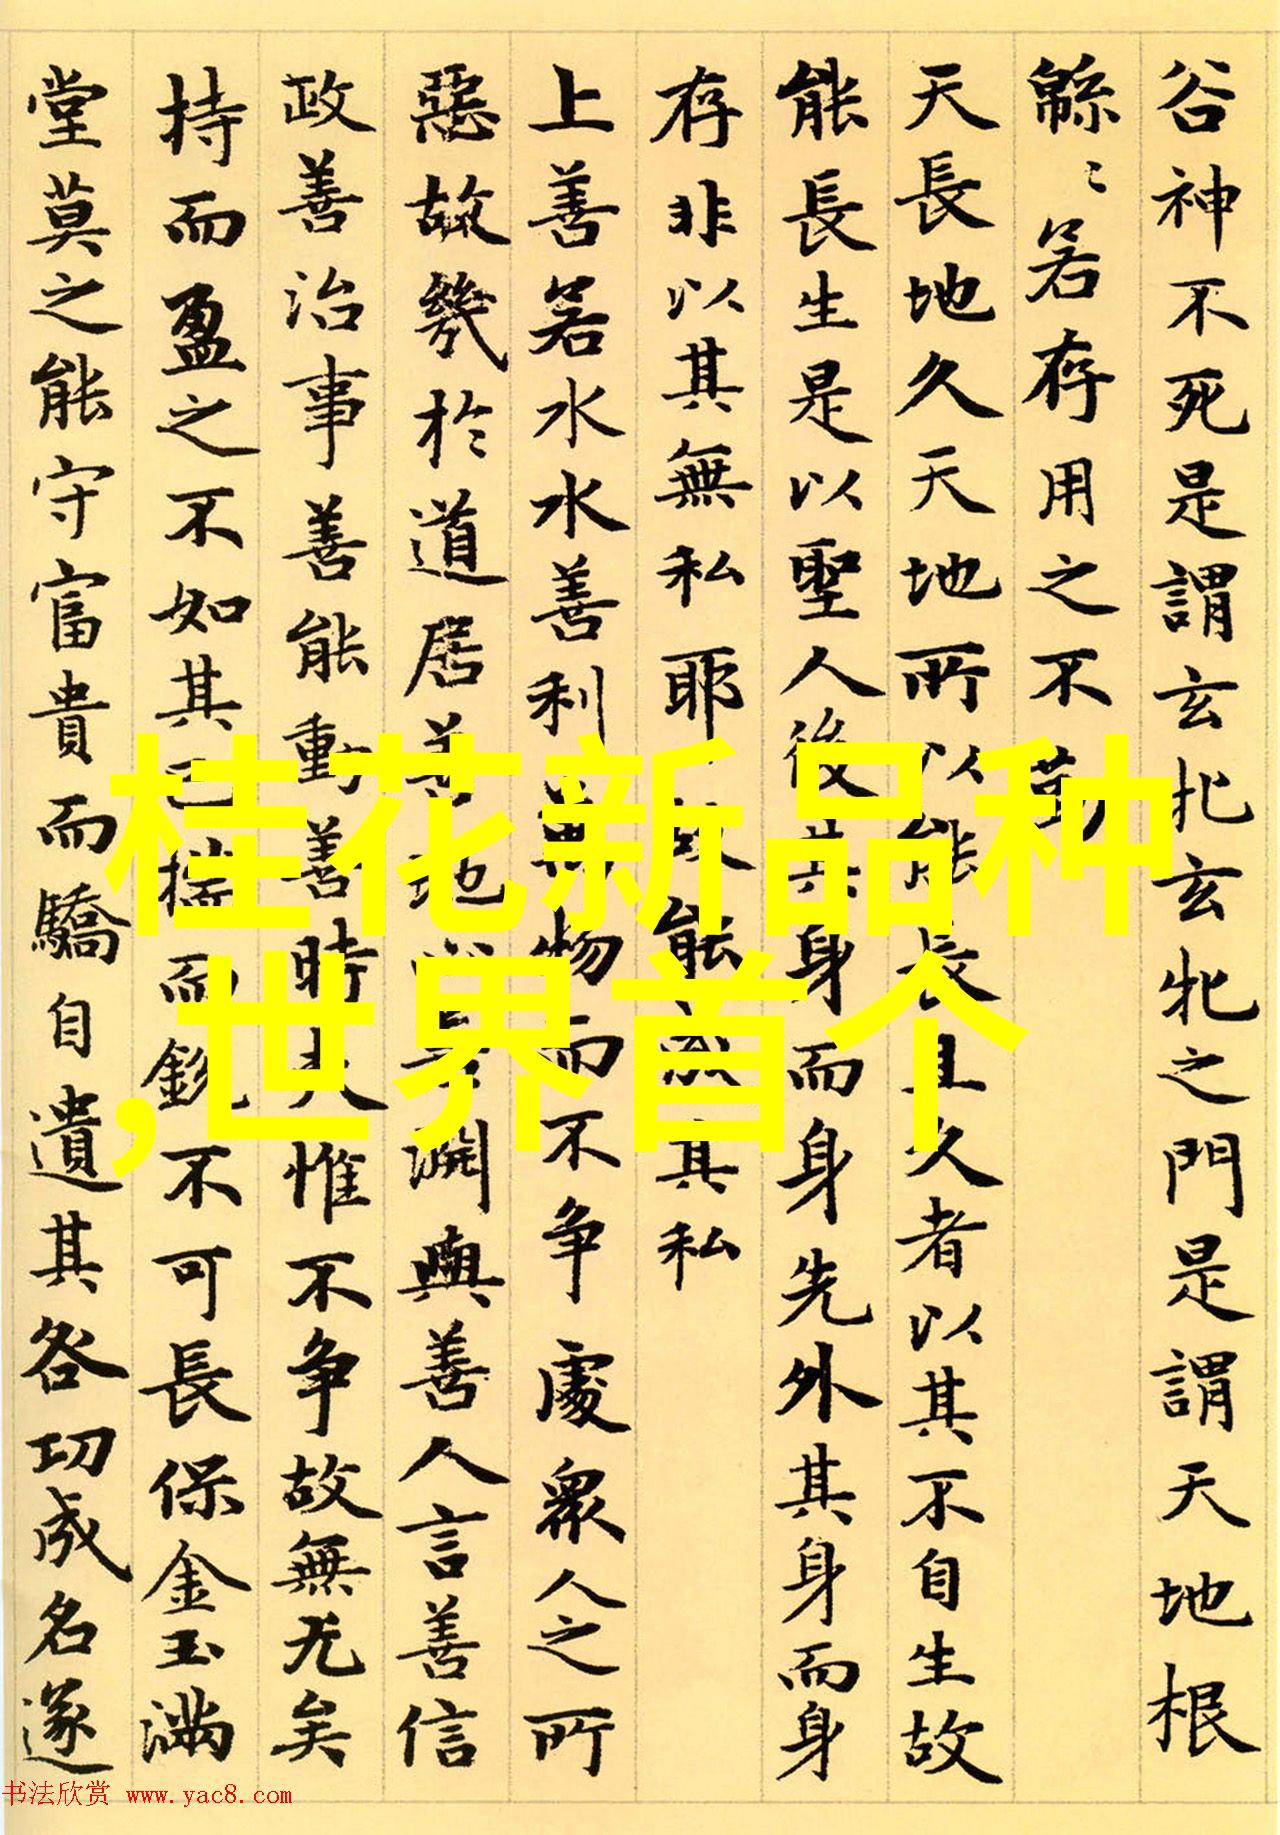 谷神不死是謂玄牝玄牝之門是謂天地根
緜〻若存用之不勤
天長地久天地所以能長且久者以其不自生故
能長生是以聖人後其身而身先外其身而身
存非以其無私耶故能成其私
上善若水水善利萬物而不争處衆人之所
惡故幾於道居善地心善渊與善人言善信
政善治事善能動善時夫惟不争故無尤矣
持而盈之不如其已揣而銳不可長保金玉滿
堂莫之能守富貴而驕自遺其咎功成名遂
桂花新品种
,世界首个
书法欣赏 www.yac8.com